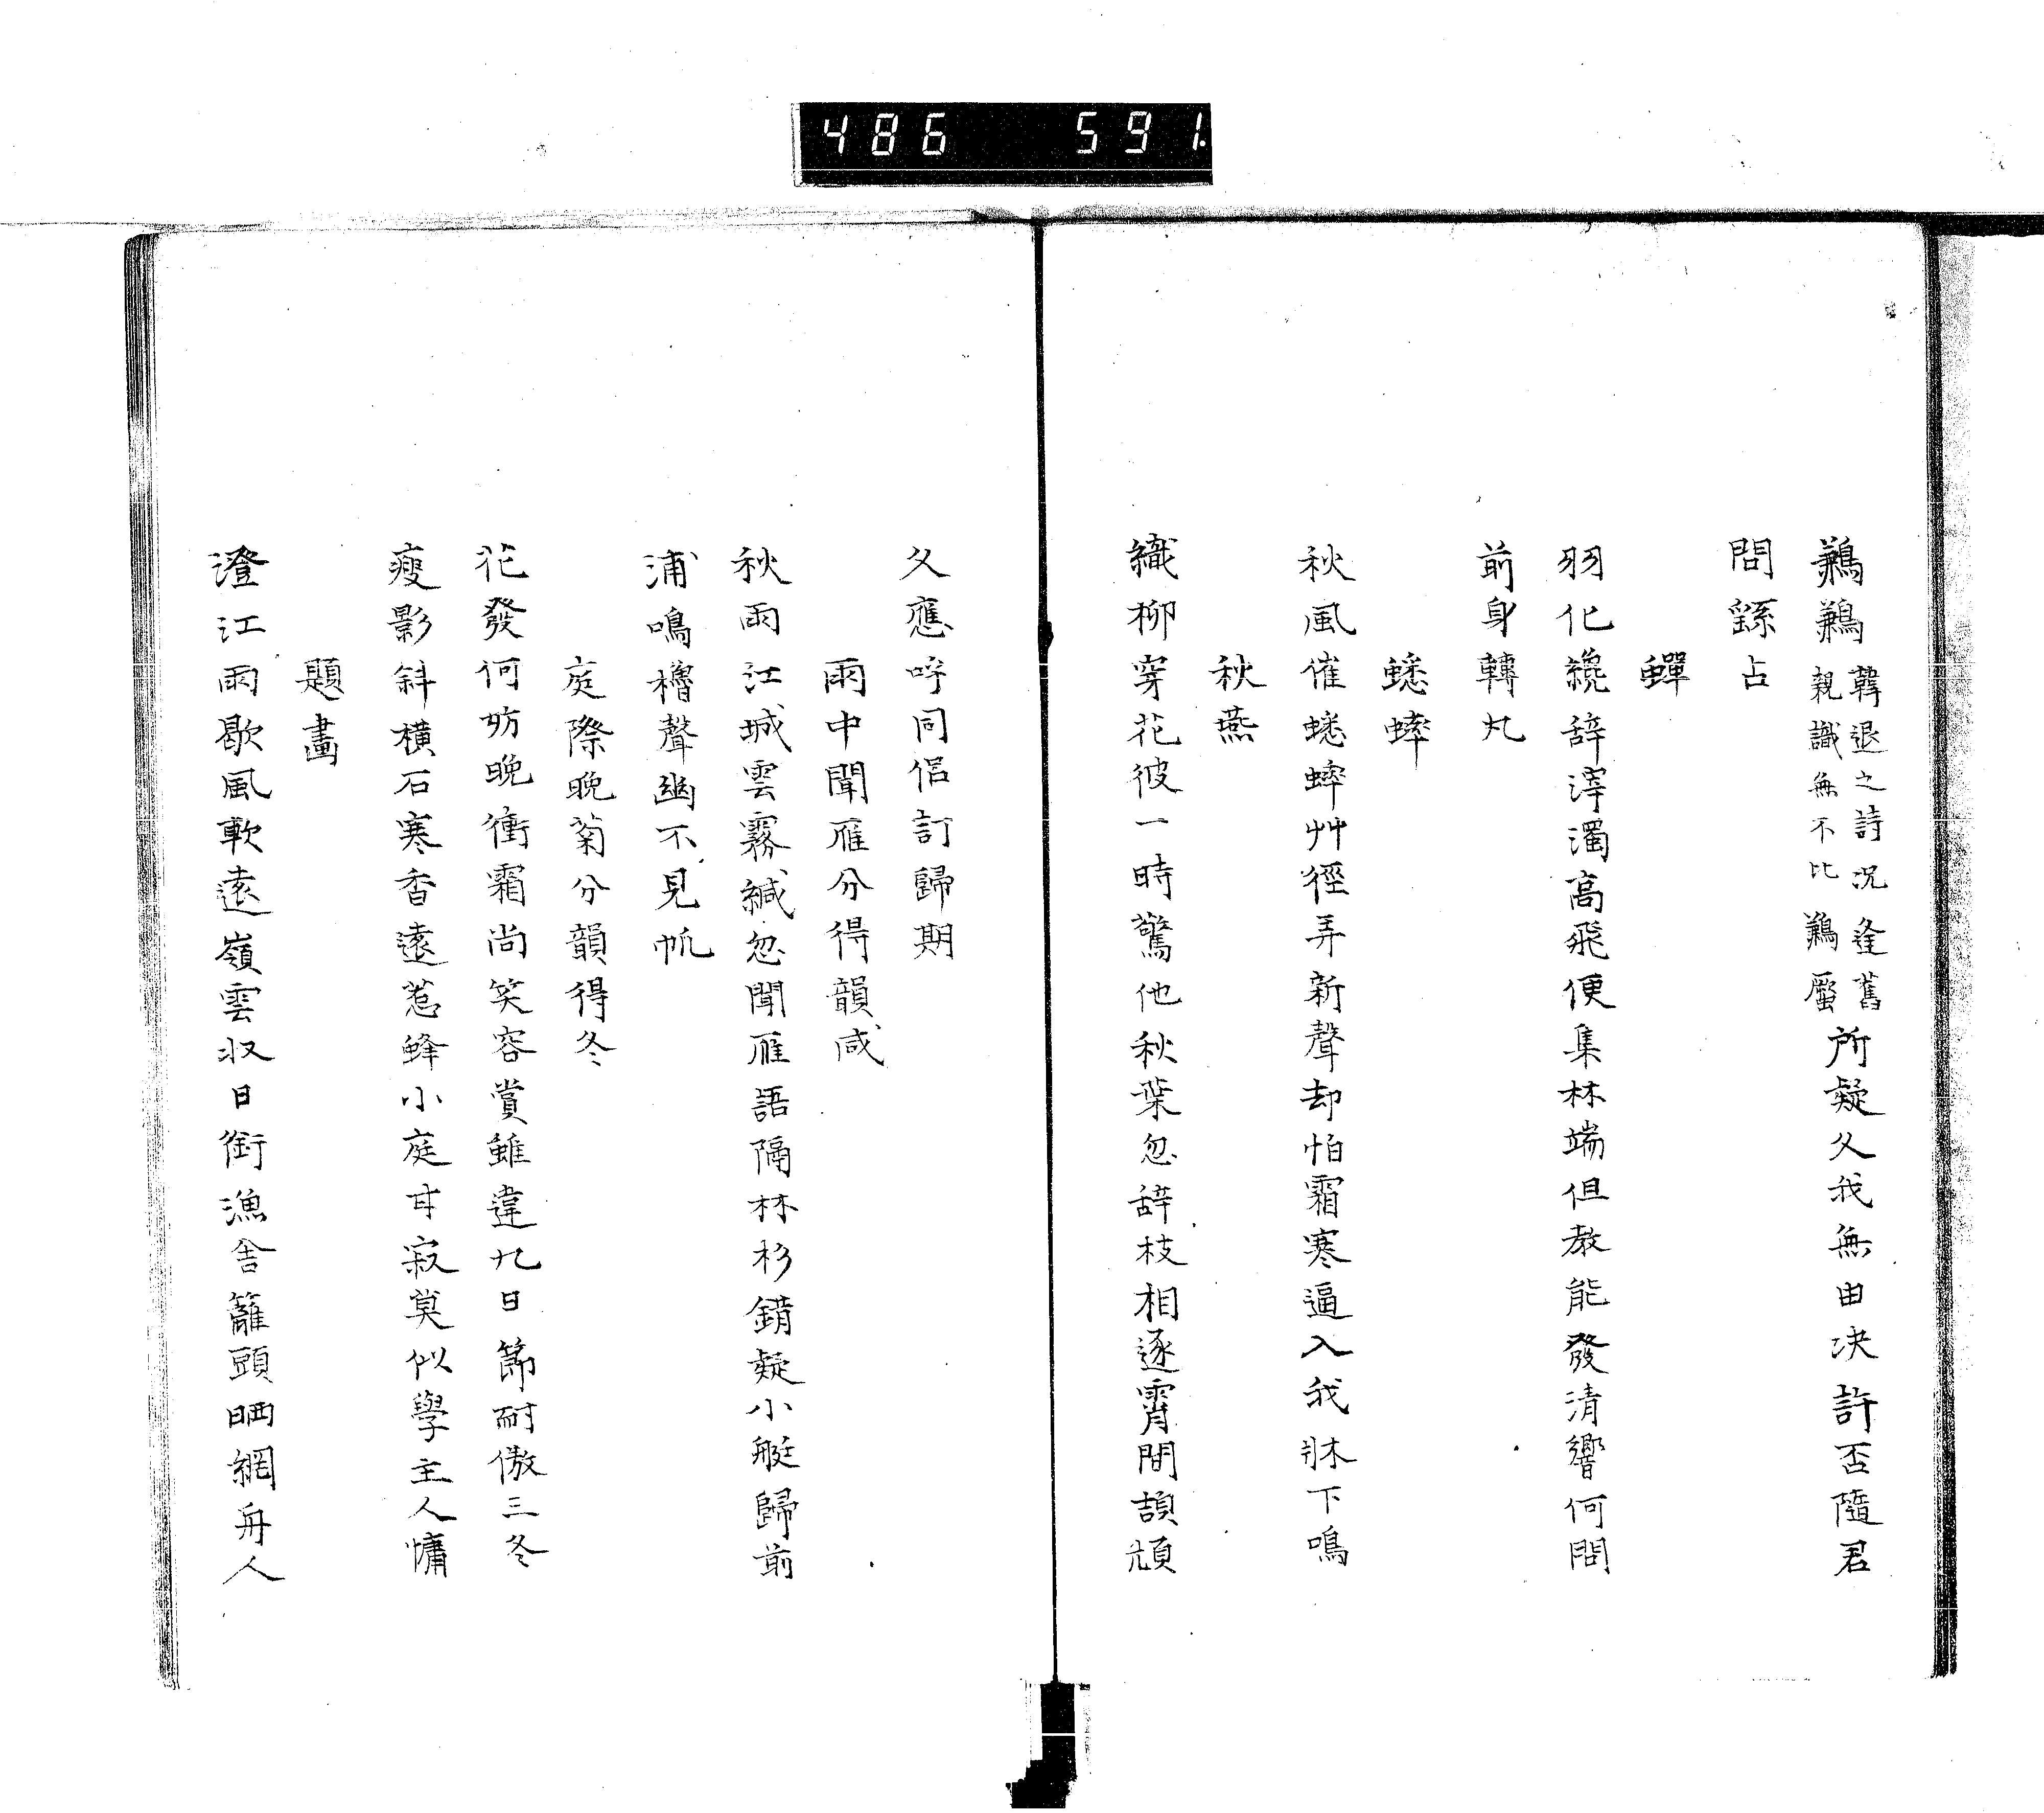 486 591.
鶼鶼韓退之詩況逢舊
親識無不比鶼蟨所疑久我無由决許否隨君
問繇占
蟬
羽化纔辞滓濁高飛便集林端但教能發清響何問
前身轉丸
蟋蟀
秋風催蟋蟀艸徑弄新聲却怕霜寒逼入我牀下鳴
秋燕
織柳穿花彼一時驚他秋葉忽辞枝相逐霄間頡頏
久應呼同侶訂歸期
雨中聞雁分得韻咸
秋雨江城雲霧緘忽聞雁語隔林杉錯疑小艇歸前
浦鳴櫓聲幽不見帆
庭際晩菊分韻得冬
花發何妨晩衝霜尚笑容賞雖違九日節耐傲三冬
瘦影斜橫石寒香遠惹蜂小庭甘寂莫似學主人慵
題畫
澄江雨歇風軟遠嶺雲収日銜漁舎籬頭晒網舟人